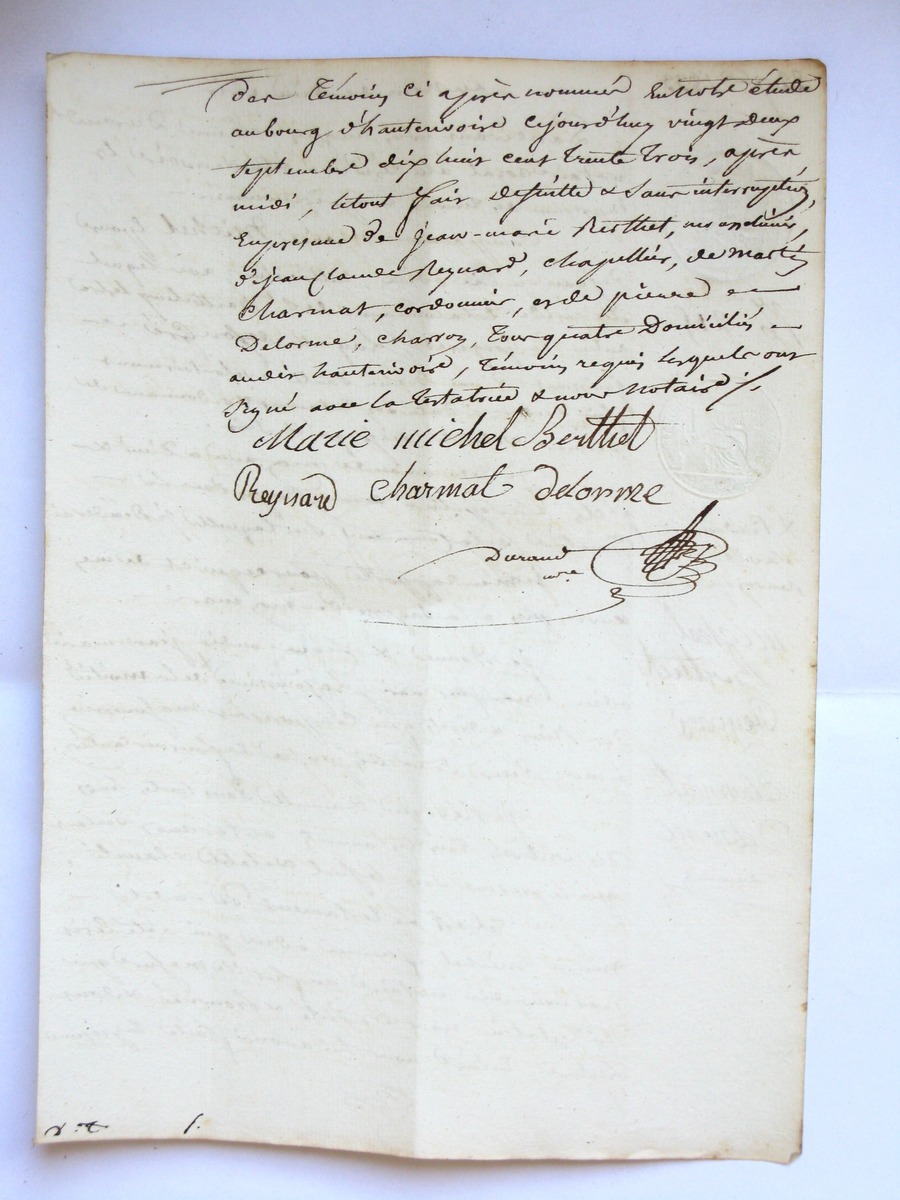 des témoins ci après nommés En notre étude
au bourg d'hauterivoire cejourd'huy vingt deux
septembre dix huit cent trente trois, après
midi, letout fait desuitte & Sans interruption,
En presence de jean-marie Berthet,
d'jean Claude Reynard, chapellier, de martin
Charmat, cordonnier, et de pierre
Delorme, charron, tous quatre Domiciliés
audit hauterivoire, Témoins requis lesquels ont
Signé avec la Testatrice & nous Notaire ./.
Marie michel Berthet
Reynard Charmat delorme
Durand
nre